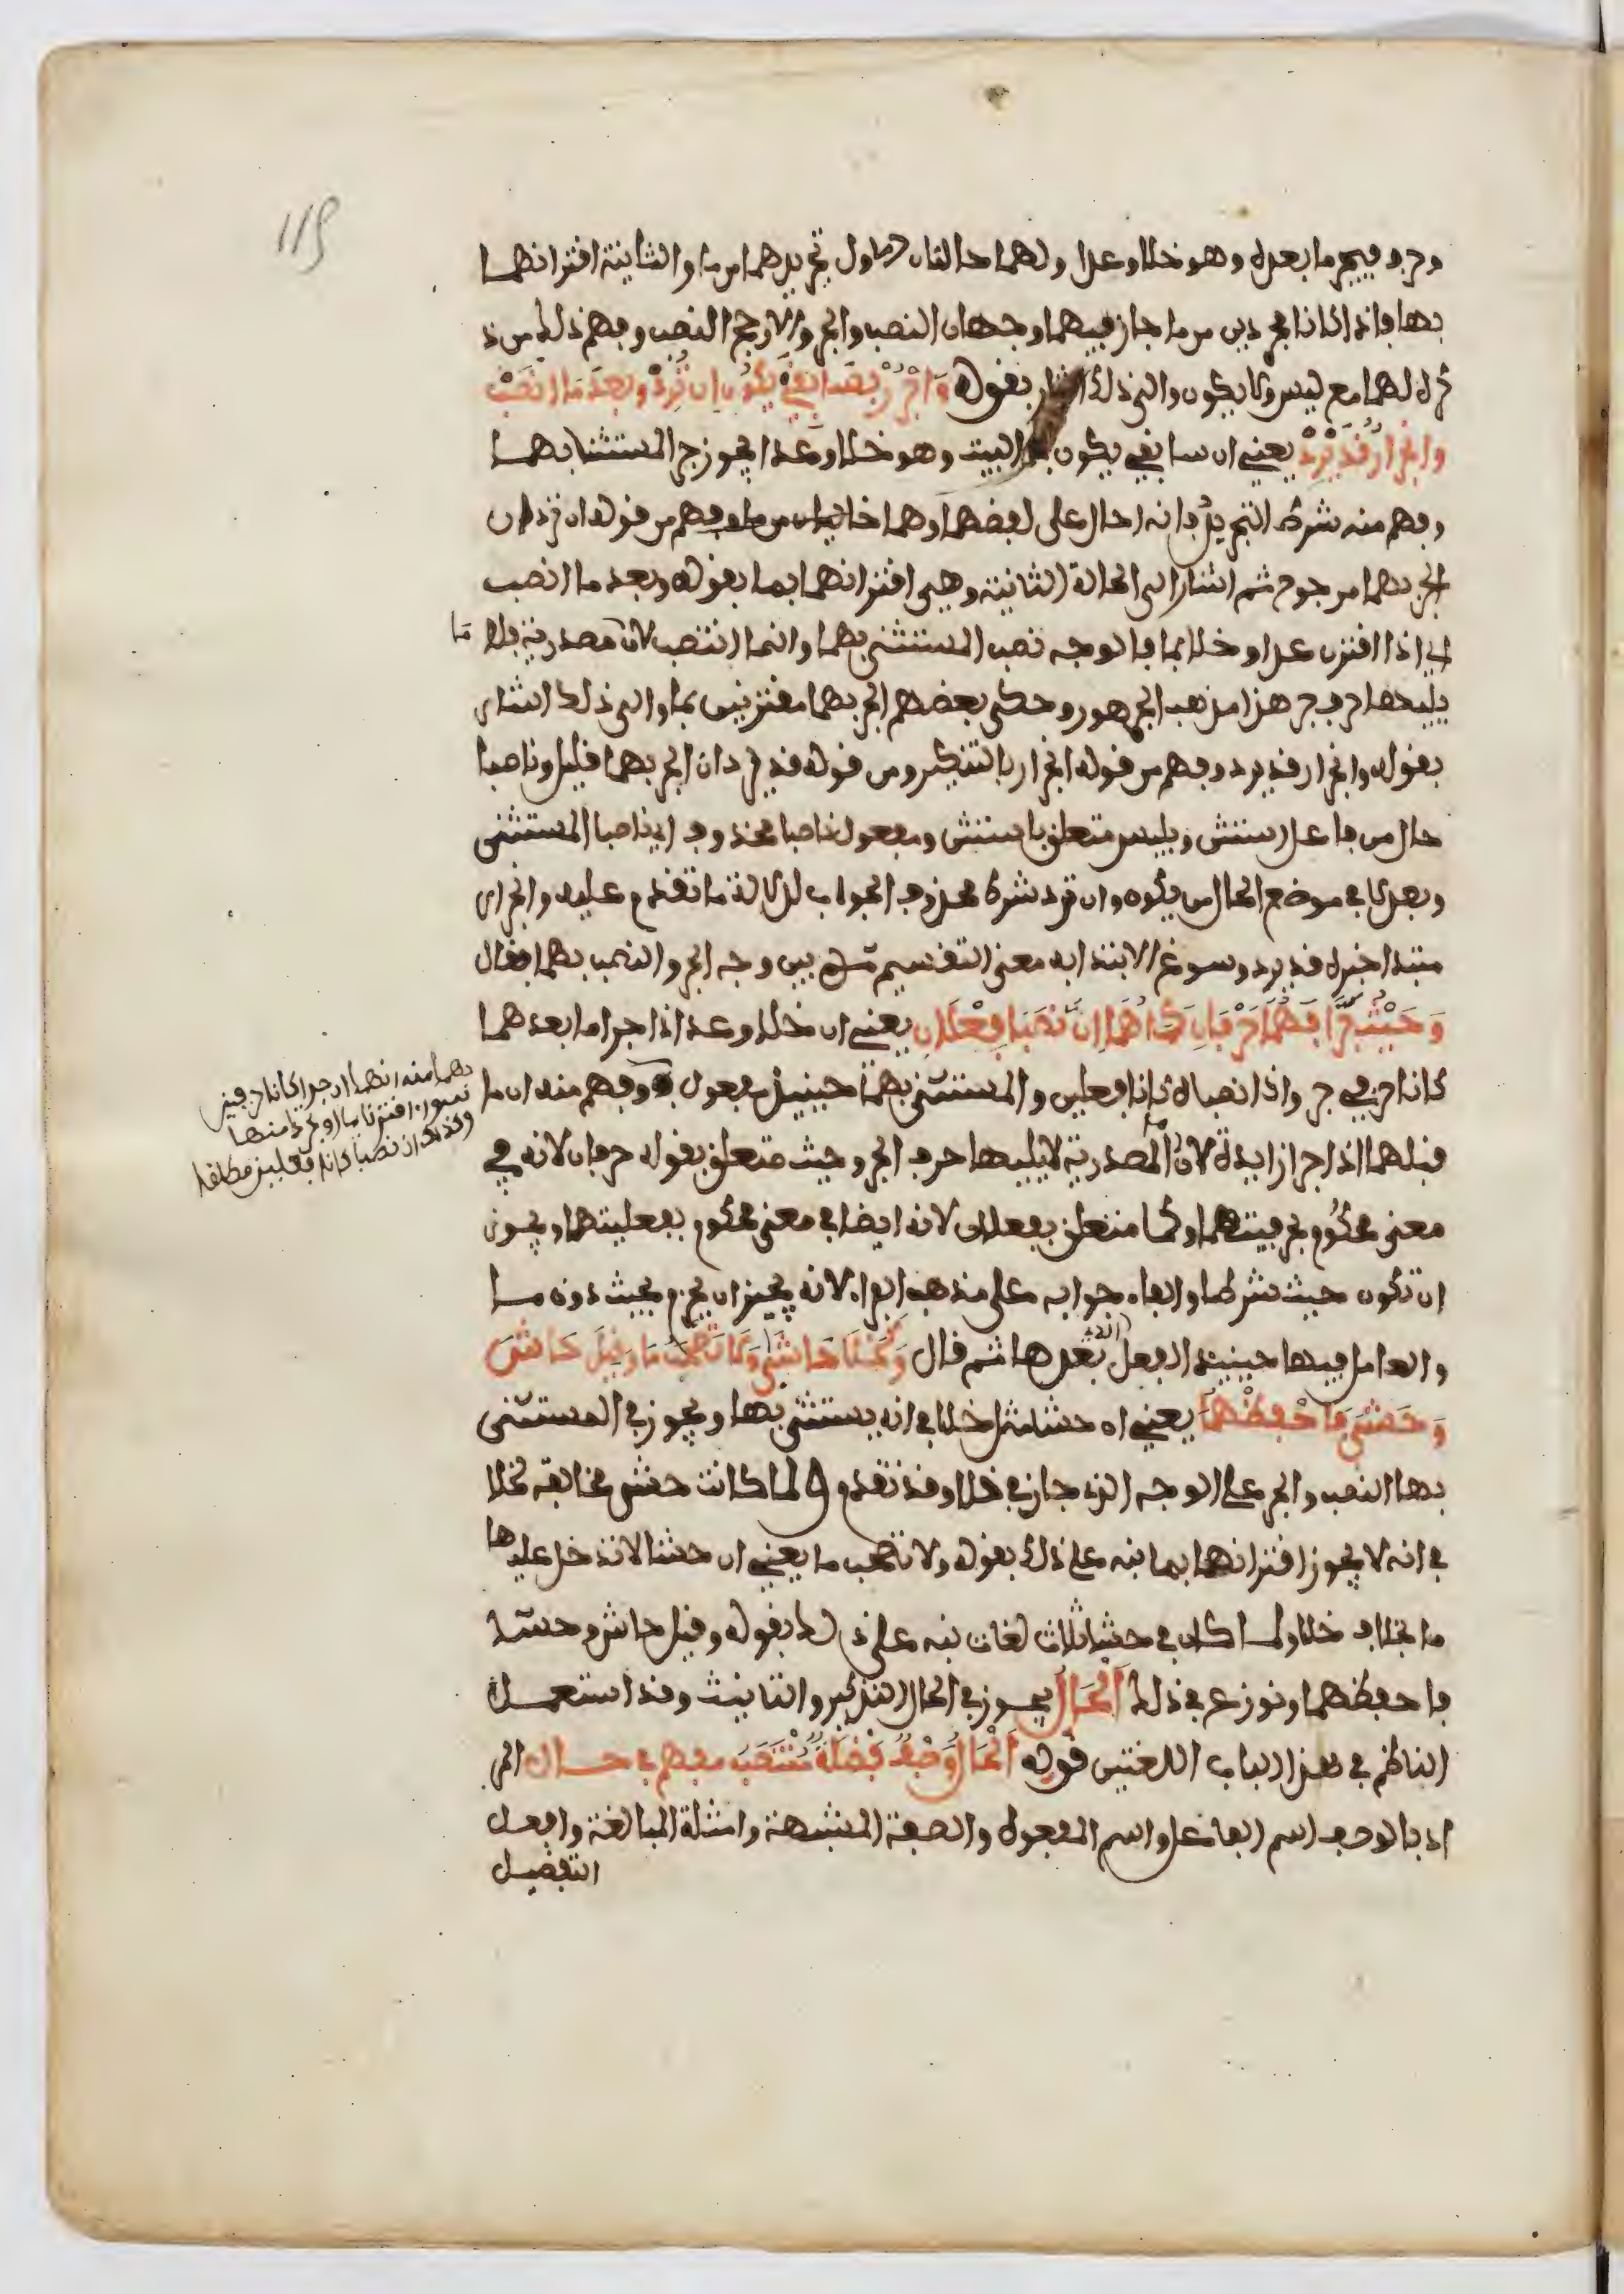 وجر فيجر ما بعده وهو خلا وعدا ولهما حالتان الاول تجريدهما من ما والثانية اقترانهما
بها فاذا كانا مجردين من ما جاز فيهما وجهان النصب والجر والارجح النصب وفهم ذلك من ذ
كره لهما مع ليس ولا يكون والى ذلك اشار بقوله وَاجْرُرْ بِسَابِقَيْ يَكُونُ ان تُرِدْ وبعد مَا انْصِبْ
وانجرارٌ قَدْ يَرِدْ يعني ان سابقي يكون في البيت وهو خلا وعدا يجوز جر المستثنا بهما
وفهم منه شرط التجريد فانه احال على لفضهما وهما خاليان من ما وفهم من قوله ان ترد ان
الجر بهما مرجوح ثم اشار الى الحالة الثانية وهي اقترانهما بما بقوله وبعد ما انصب
اي اذا اقترن عدا وخلا بما فالوجه نصب المستثنى بهما وانما انتصب لان مصدرية فلا ما
يليها حرف جر هذا مذهب الجمهور وحكى بعضهم الجر بهما مقترنين بما والى ذلك اشار
بقوله وانجرار قد يرد وفهم من قوله انجرار بالتنكير ومن قوله قد يرد ان الجر بهما قليل وناصبا
حال من فاعل استثن وبليس متعلق باستثن ومفعول ناصبا محذوف اي ناصبا المستثنى
وبعد لا في موضع الحال من يكون وان ترد شرط محذوف الجواب لدلالة ما تقدم عليه وانجرار
مبتدا خبره قد يرد وسوغ الابتدا به معنى التقسيم ثم بين وجه الجر والنصب بهما فقال
وَحَيْثُ جَرَّا فَهُمَا حَرْفَانِ كَمَا هُمَا إِنْ نَصَبَا فِعْلَانِ يعني ان خلا وعدا اذا جرا ما بعدهما
كانا حرفي جر واذا نصباه كانا فعلين والمستثنى بهما حينئذ مفعول به وفهم منه ان ما
بهما منه انهما ان جرا كانا حرفين
سوا اقترنا بما او تجردا منها
وكذلك ان نصبا كانا فعلين مطلقا
قبلهما اذا جرا زايدة لان ما المصدرية لا يليها حرف الجر وحيث متعلق بقوله حرفان لانه في
معنى محكوم بحرفيتهما وكما متعلق بفعلان لانه ايضا في معنى محكوم بفعليتهما ويجوز
ان تكون حيث شرطا والفاء جوابه على مذهب الفراء لانه يجيز ان يجزم بحيث دون ما
والعامل فيها حينيذ الفعل الذي بعدها ثم قال وَكَخَلَا حَاشَى وَلَا تَصْحَبُ مَا وَقِيلَ حَاشَ
وَحَشَى فَاحْفَظْهُمَا يعني ان حشا مثل خلا في انه يستثنى بها ويجوز في المستثنى
بها النصب والجر على الوجه الذي جاز في خلا وقد تقدم ولما كانت حشى مخالفة لخلا
في انه لا يجوز اقترانها بما نبه على ذلك بقوله ولا تصحب ما يعني ان حشا لا تدخل عليها
ما بخلاف خلا ولما كان في حشا ثلاث لغات نبه على ذلك بقوله وقيل حاش وحشا
فاحفظهما ونوزع في ذلك اَلْحَالُ يجوز في الحال التذكير والتانيث وقد استعمل
الناظم في هذا الباب اللغتين قوله اَلْحَالُ وَصْفٌ فَضْلَةٌ مُنْتَصِبُ مفهم في حال الى
اد بالوصف اسم الفاعل واسم المفعول والصفة المشبهة وامثلة المبالغة وافعل
التفضيل